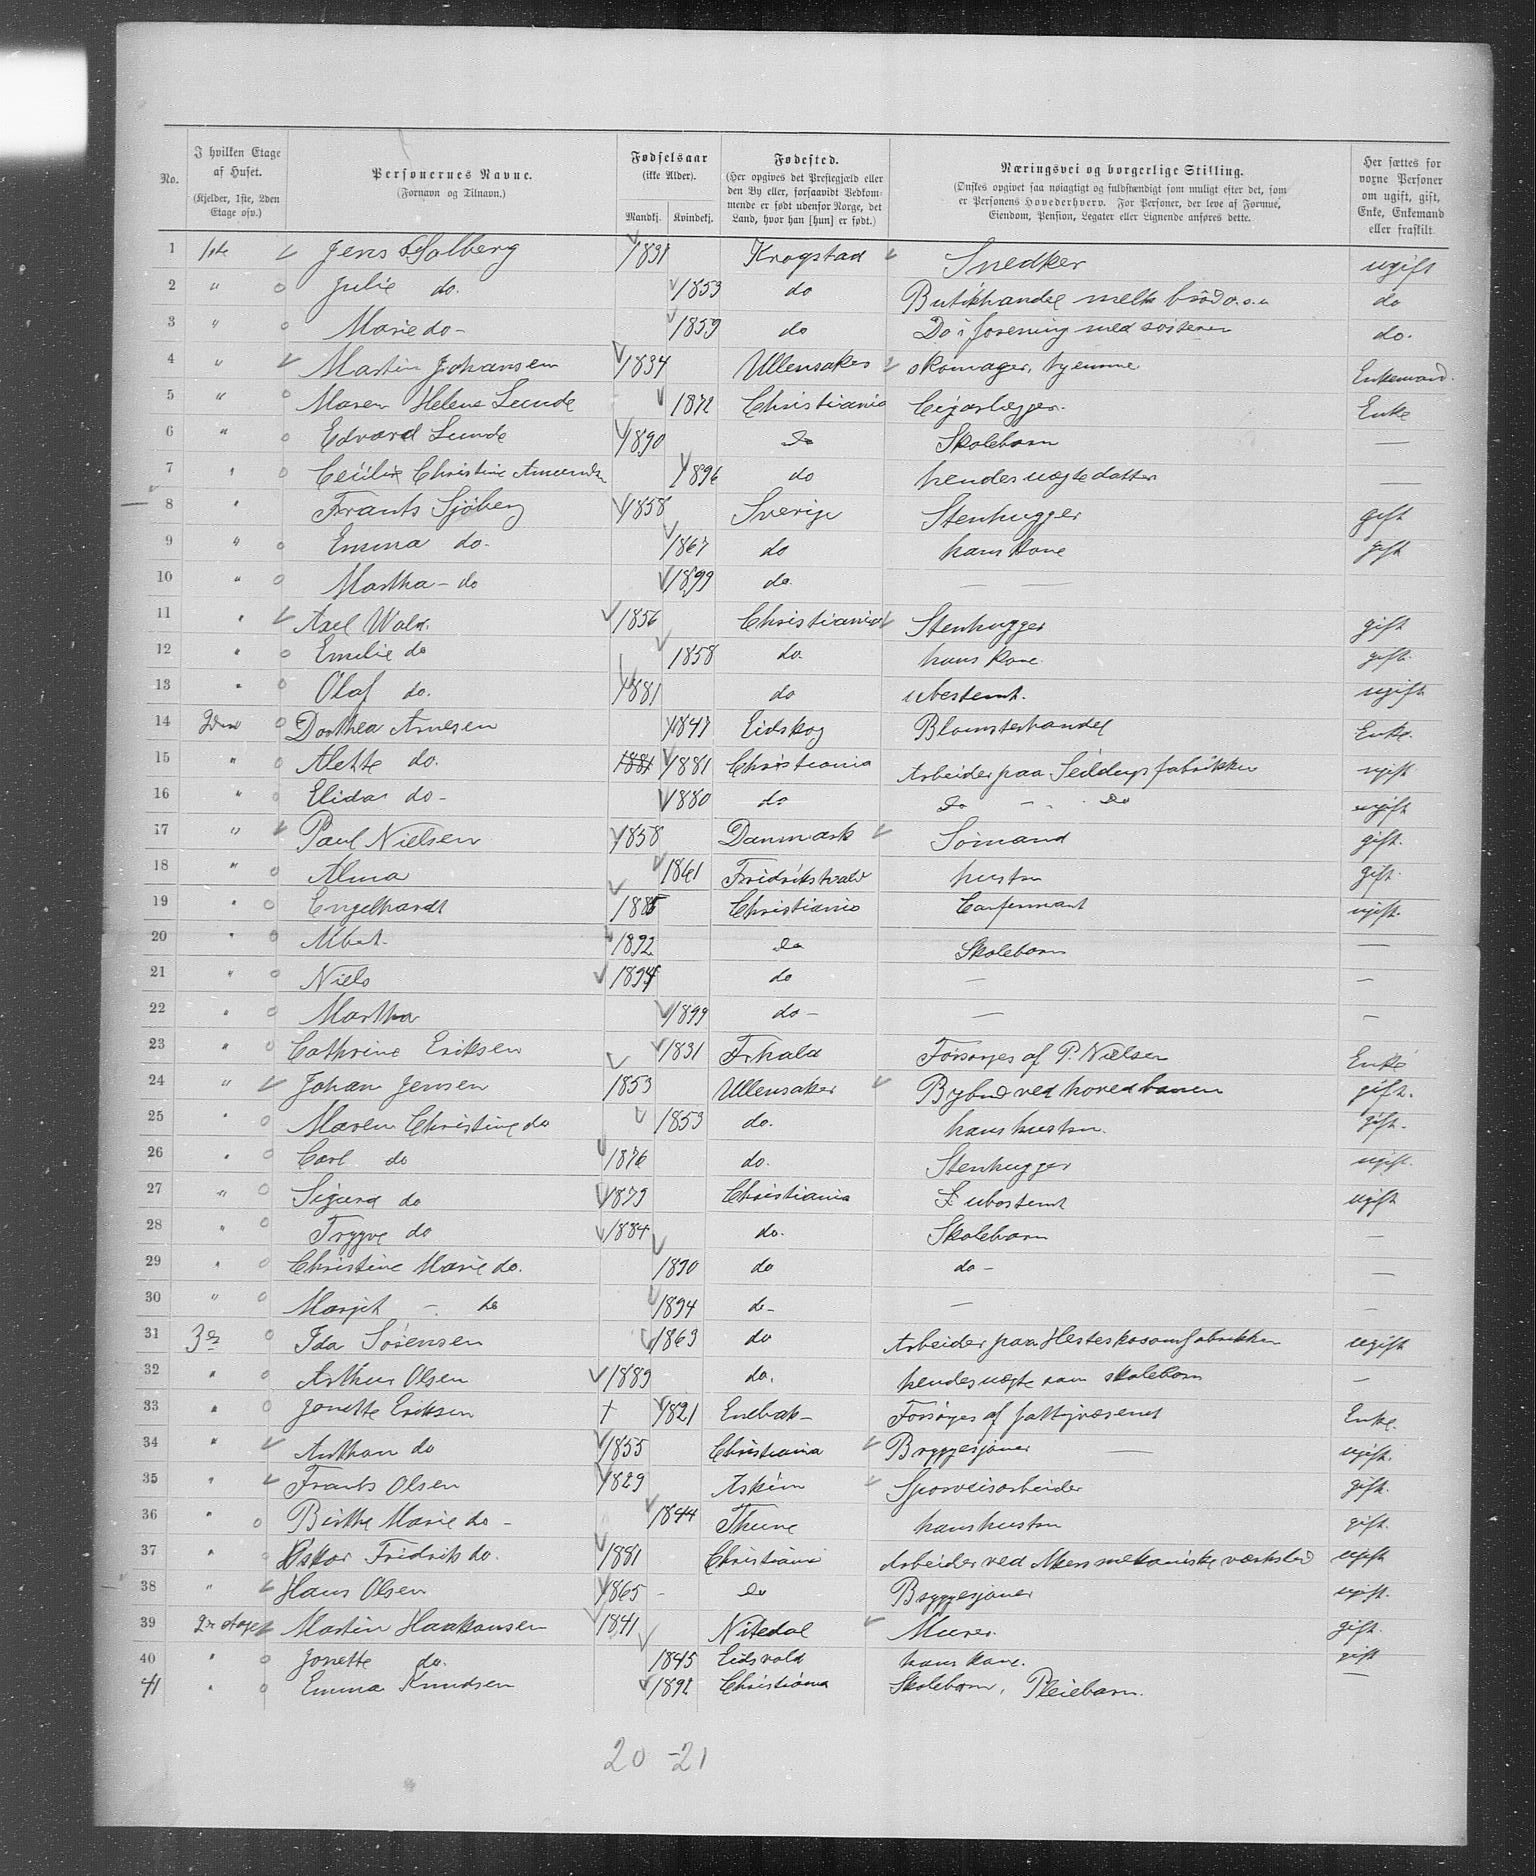 No. | I hvilken Etage af Huset. (Kjelder, 1ste, 2den Etage osv.) | Personernes Navne. (Fornavn og Tilnavn.) | Fødselsaar (ikke Alder). Mandkj. Kvindekj. | Fødested. (Her opgives det Prestegjæld eller den By eller, forsaavidt Vedkommende er født udenfor Norge, det Land, hvor han [hun] er født.) | Næringsvei og borgerlige Stilling. (Ønskes opgivet saa nøiagtigt og fuldstændigt som muligt efter det, som er Personens Hovederhverv. For Personer, der leve af Formue, Eiendom, Pension, Legater eller Lignende anføres dette. | Her sættes for voxne Personer om ugift, gift, Enke, Enkemand eller fraskilt.
1 1ste Jens Solberg 1831 Krogstad Snedker ugift
2 " Julie do. 1853 do Butikhandel melk brød o.s.v do
3 " Marie do - 1859 do Do i forening med søsteren do.
4 " Martin Johansen 1834 Ullensaker skomager, hjemme Enkemand.
5 " Maren Helene Lunde 1872 Christiania Cigarlægger. Enke
6 " Edvard Lunde 1890 do Skolebarn —
7 " Cecilie Christine Amundsen 1896 do hendes uægte datter —
8 " Frants Sjöberg 1858 Sverige Stenhugger gift
9 " Emma do. 1867 do hans kone gift
10 " Martha - do 1899 do — —
11 " Axel Wold. 1856 Christiania Stenhugger gift
12 " Emilie do 1858 do. hans kone. gift.
13 " Olaf do. 1881 do ubestemt. ugift
14 2den Dorthea Arnesen 1847 Eidskog Blomsterhandel Enke.
15 " Alette do. 1881 1881 Christiania Arbeider paa Seildugsfabrikken ugift
16 " Elida do - 1880 do do - " - do ugift
17 " Paul Nielsen 1858 Danmark Sømand gift.
18 " Alma 1861 Fridrikshald hustru gift.
19 " Engelhardt 1885 Christiania Confirmant ugift.
20 " Albert. 1892 do Skolebarn —
21 " Niels 1894 do — —
22 " Martha 1899 do - — —
23 " Cathrine Eriksen 1831 Frhald Forsørges af P. Nielsen Enke
24 " Johan Jensen 1853 Ullensaker Bybud ved hovedbanen gift.
25 " Maren Christine do 1853 do. hans hustru. gift.
26 " Carl do 1876 do. Stenhugger ugift.
27 " Sigurd do 1879 Christiania ubestemt ugift
28 " Trygve do 1884 do. Skolebarn —
29 " Christine Marie do. 1890 do do - —
30 " Margit - do 1894 do - — —
31 3de Ida Sørensen 1863 do Arbeider paa Hesteskosømfabrikken ugift
32 " Arthur Olsen 1889 do. hendes uægte søn skolebarn —
33 " Jonette Eriksen † 1821 Enebak - Forsørges af fattigvæsenet Enke.
34 " Anthon do 1855 Christiania Bryggesjauer — ugift.
35 " Frants Olsen 1829 Askim Sporveisarbeider gift.
36 " Birthe Marie do - 1844 Thune hans hustru gift.
37 " Oskar Fridrik do. 1881 Christiania Arbeider ved Akers mekaniske værksted ugift
38 " Hans Olsen 1865 - do Bryggesjauer ugift.
39 2n etage Martin Haakonsen 1841 Nitedal Murer. gift.
40 " Jonette do. 1845 Eidsvold hans kone. gift
41 " Emma Knudsen 1892 Christiania Skolebarn, Pleiebarn. —
20 - 21